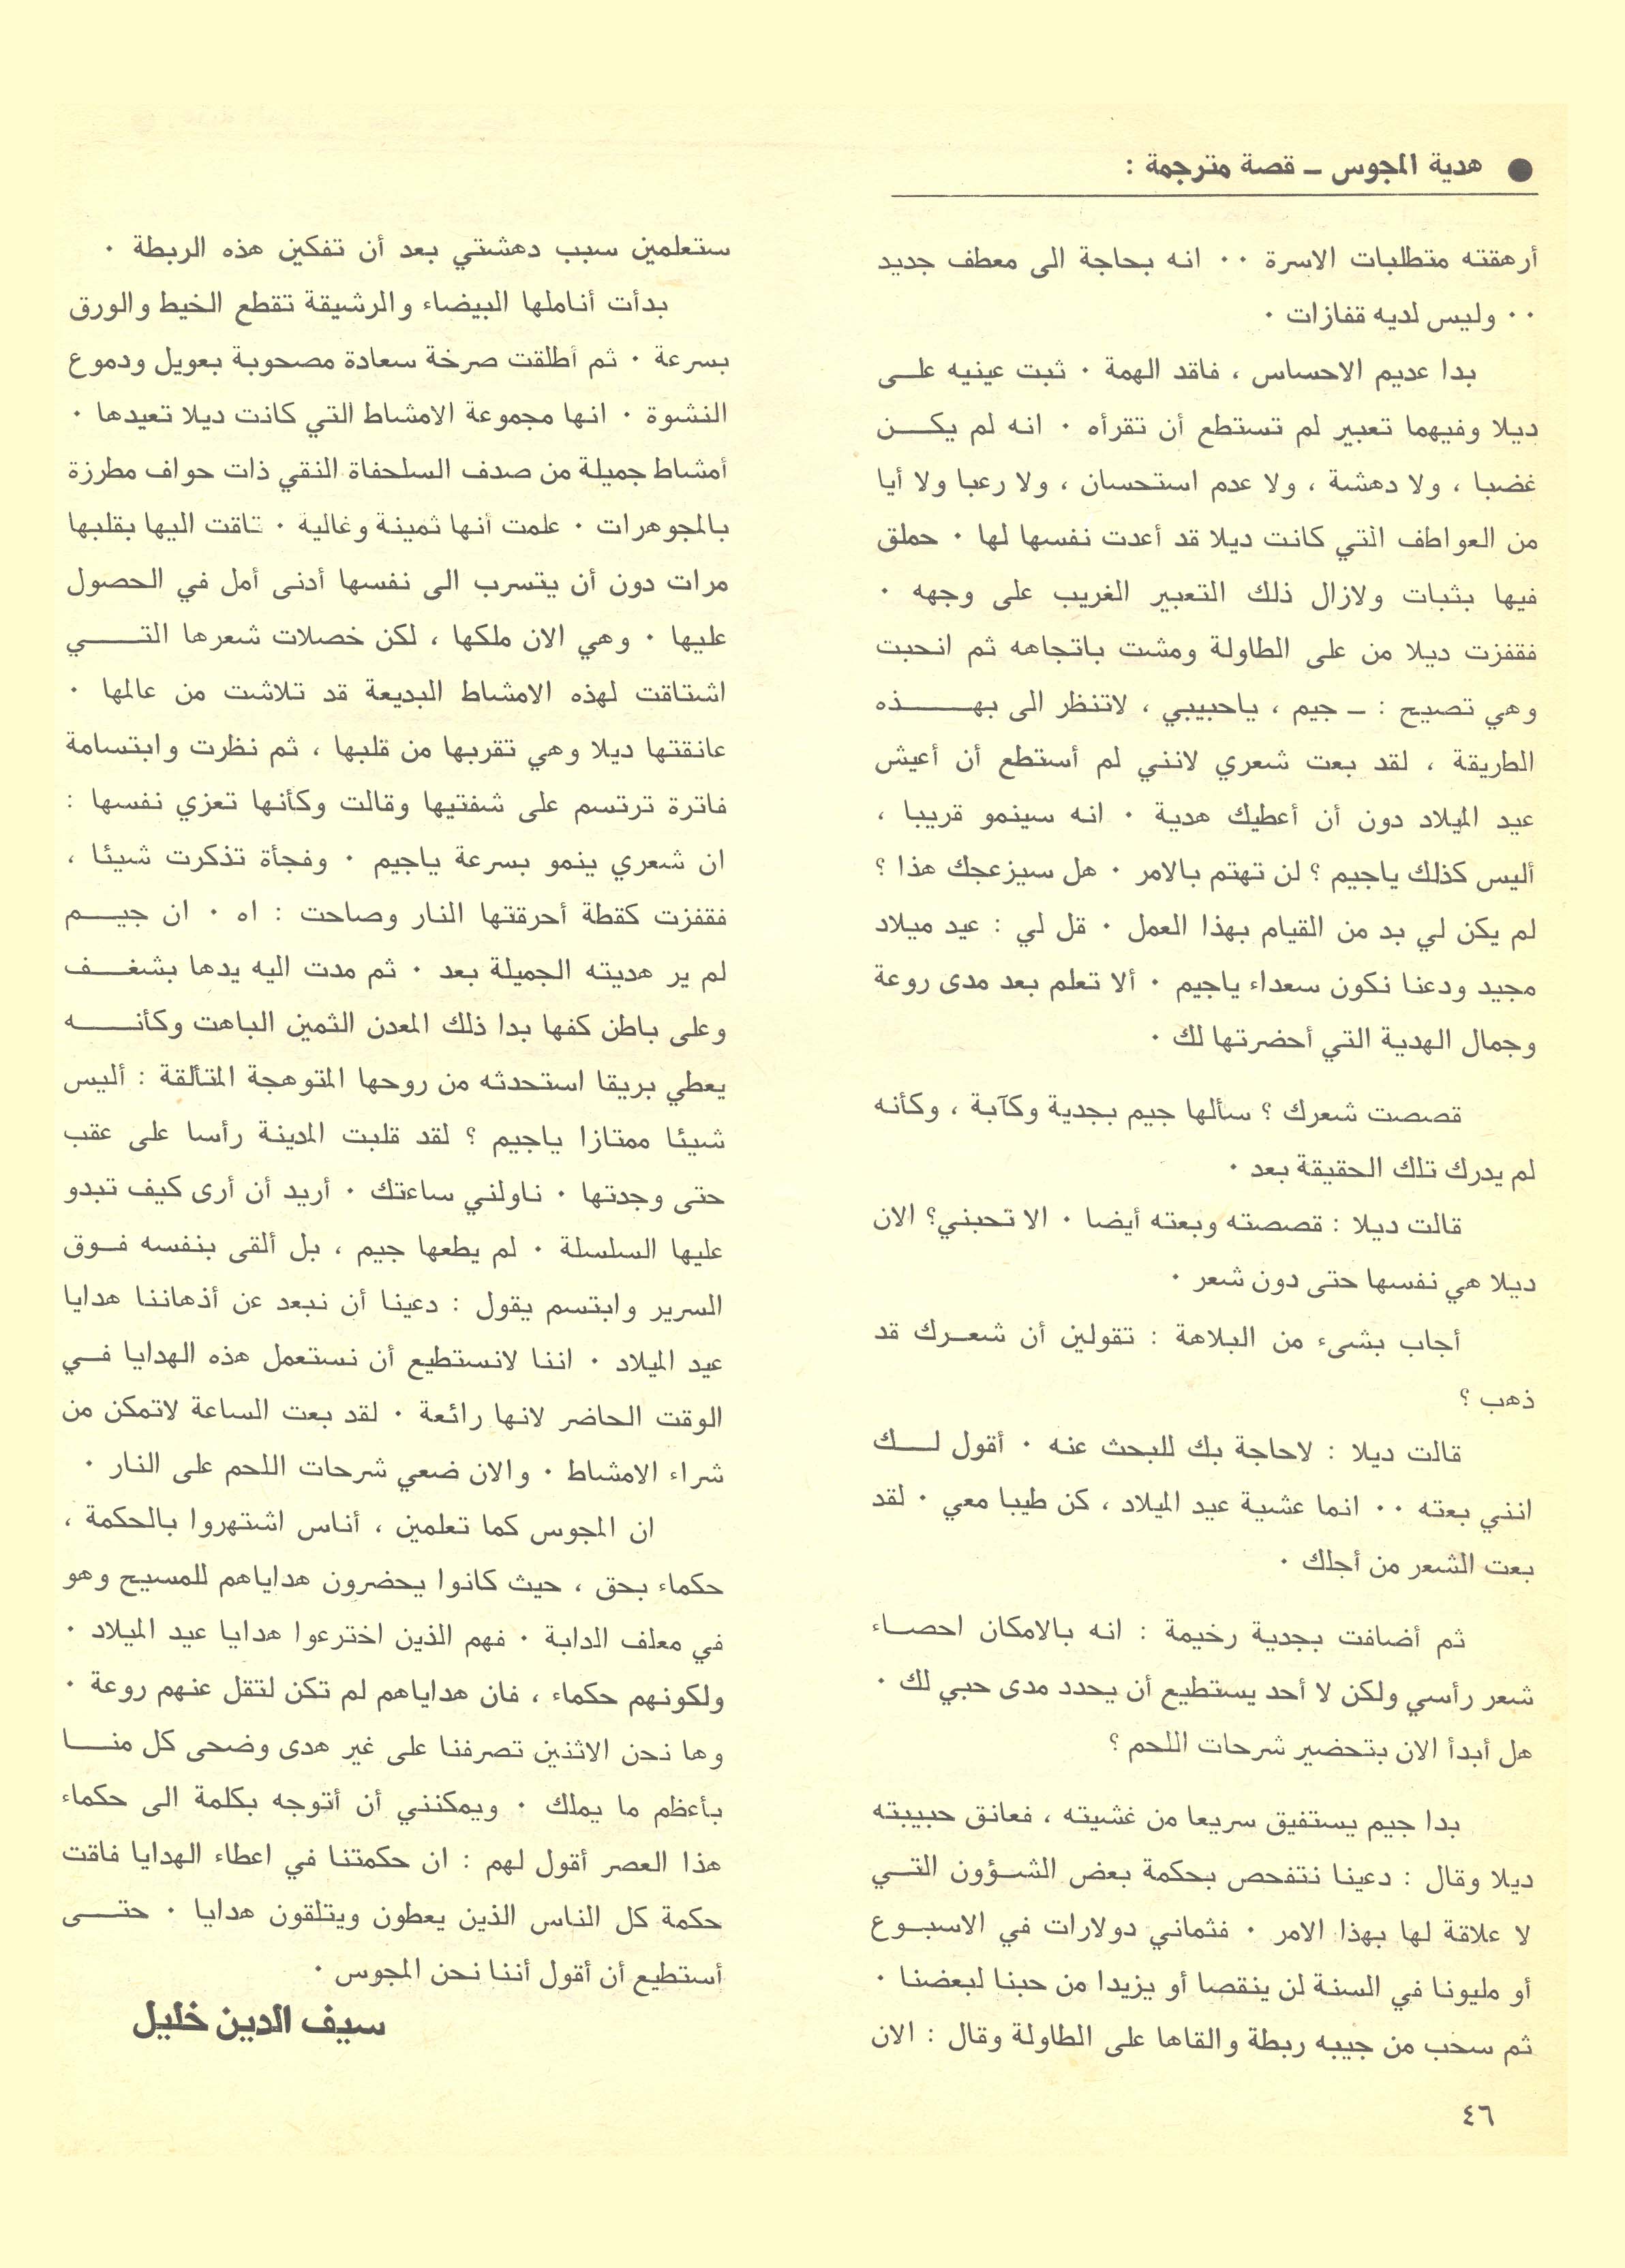 ● هدية المجوس ــ قصة مترجمة :
أرهقته متطلبات الاسرة ٠٠ انه بحاجة الى معطف جديد
٠٠ وليس لديه قفازات ٠
بدا عديم الاحساس ، فاقد الهمة ٠ ثبت عينيه على
ديلا وفيهما تعبير لم تستطع أن تقرأه ٠ انه لم يكن
غضبا ، ولا دهشة ، ولا عدم استحسان ، ولا رعبا ولا أيا
من العواطف التي كانت ديلا قد أعدت نفسها لها ٠ حملق
فيها بثبات ولازال ذلك التعبير الغريب على وجهه ٠
فقفزت ديلا من على الطاولة ومشت باتجاهه ثم انحبت
وهي تصيح : ــ جيم ، ياحبيبي ، لاتنظر الى بهذه
الطريقة ، لقد بعت شعري لانني لم أستطع أن أعيش
عيد الميلاد دون أن أعطيك هدية ٠ انه سينمو قريبا ،
أليس كذلك ياجيم ؟ لن تهتم بالامر ٠ هل سيزعجك هذا ؟
لم يكن لي بد من القيام بهذا العمل ٠ قل لي : عيد ميلاد
مجيد ودعنا نكون سعداء ياجيم ٠ ألا تعلم بعد مدى روعة
وجمال الهدية التي أحضرتها لك ٠
قصصت شعرك ؟ سألها جيم بجدية وكآبة ، وكأنه
لم يدرك تلك الحقيقة بعد ٠
قالت ديلا : قصصته وبعته أيضا ٠ الا تحبني؟ الان
ديلا هي نفسها حتى دون شعر ٠
أجاب بشىء من البلاهة : تقولين أن شعرك قد
ذهب ؟
قالت ديلا : لاحاجة بك للبحث عنه ٠ أقول لك
انني بعته ٠٠ انما عشية عيد الميلاد ، كن طيبا معي ٠ لقد
بعت الشعر من أجلك ٠
ثم أضافت بجدية رخيمة : انه بالامكان احصاء
شعر رأسي ولكن لا أحد يستطيع أن يحدد مدى حبي لك ٠
هل أبدأ الان بتحضير شرحات اللحم ؟
بدا جيم يستفيق سريعا من غشيته ، فعانق حبيبته
ديلا وقال : دعينا نتفحص بحكمة بعض الشؤون التي
لا علاقة لها بهذا الامر ٠ فثماني دولارات في الاسبوع
أو مليونا في السنة لن ينقصا أو يزيدا من حبنا لبعضنا ٠
ثم سحب من جيبه ربطة والقاها على الطاولة وقال : الان
ستعلمين سبب دهشتي بعد أن تفكين هذه الربطة ٠
بدأت أناملها البيضاء والرشيقة تقطع الخيط والورق
بسرعة ٠ ثم أطلقت صرخة سعادة مصحوبة بعويل ودموع
النشوة ٠ انها مجموعة الامشاط التي كانت ديلا تعيدها ٠
أمشاط جميلة من صدف السلحفاة النقي ذات حواف مطرزة
بالمجوهرات ٠ علمت أنها ثمينة وغالية ٠ تاقت اليها بقلبها
مرات دون أن يتسرب الى نفسها أدنى أمل في الحصول
عليها ٠ وهي الان ملكها ، لكن خصلات شعرها التي
اشتاقت لهذه الامشاط البديعة قد تلاشت من عالمها ٠
عانقتها ديلا وهي تقربها من قلبها ، ثم نظرت وابتسامة
فاترة ترتسم على شفتيها وقالت وكأنها تعزي نفسها :
ان شعري ينمو بسرعة ياجيم ٠ وفجأة تذكرت شيئا ،
فقفزت كقطة أحرقتها النار وصاحت : اه ٠ ان جيم
لم ير هديته الجميلة بعد ٠ ثم مدت اليه يدها بشغف
وعلى باطن كفها بدا ذلك المعدن الثمين الباهت وكأنه
يعطي بريقا استحدثه من روحها المتوهجة المتألقة : أليس
شيئا ممتازا ياجيم ؟ لقد قلبت المدينة رأسا على عقب
حتى وجدتها ٠ ناولني ساعتك ٠ أريد أن أرى كيف تبدو
عليها السلسلة ٠ لم يطعها جيم ، بل ألقى بنفسه فوق
السرير وابتسم يقول : دعينا أن نبعد عن أذهاننا هدايا
عيد الميلاد ٠ اننا لانستطيع أن نستعمل هذه الهدايا في
الوقت الحاضر لانها رائعة ٠ لقد بعت الساعة لاتمكن من
شراء الامشاط ٠ والان ضعي شرحات اللحم على النار ٠
ان المجوس كما تعلمين ، أناس اشتهروا بالحكمة ،
حكماء بحق ، حيث كانوا يحضرون هداياهم للمسيح وهو
في معلف الدابة ٠ فهم الذين اخترعوا هدايا عيد الميلاد ٠
ولكونهم حكماء ، فان هداياهم لم تكن لتقل عنهم روعة ٠
وها نحن الاثنين تصرفنا على غير هدى وضحى كل منا
بأعظم ما يملك ٠ ويمكنني أن أتوجه بكلمة الى حكماء
هذا العصر أقول لهم : ان حكمتنا في اعطاء الهدايا فاقت
حكمة كل الناس الذين يعطون ويتلقون هدايا ٠ حتى
أستطيع أن أقول أننا نحن المجوس ٠
سيف الدين خليل
٤٦